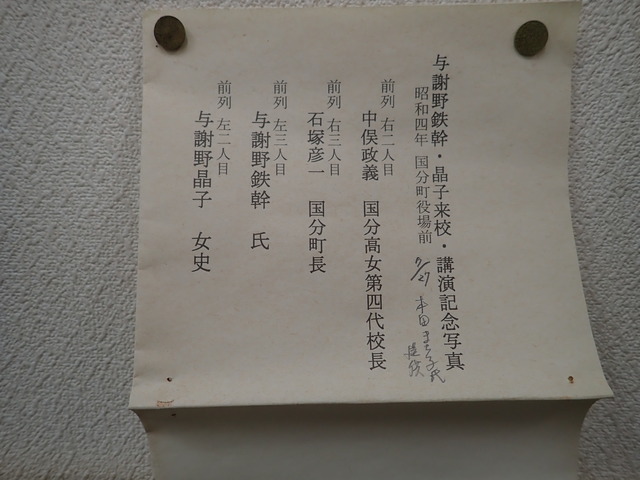 与謝野鉄幹・晶子来校・講演記念写真
昭和四年 国分町役場前 9/27 本田
前列 右二人目
中俣政義 国分高女第四代校長
前列 右三人目
石塚彦一 国分町長
前列 左三人目
与謝野鉄幹 氏
前列 左二人目
与謝野晶子 女史